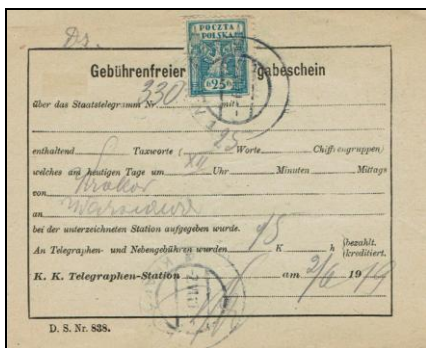 Dr.
POCZTA
POLSKA
25
Gebührenfreier gabeschein
über das Staatstelegramm Nr. 330 mit
enthaltend Taxworte ( 25 Worte, Chiffrengruppen)
welches am heutigen Tage um XII Uhr Minuten Mittags
von Krakow
an Warszawa
bei der unterzeichneten Station aufgegeben wurde.
An Telegraphen- und Nebengebühren wurden 15 K h bezahlt.
kreditiert.
K. K. Telegraphen-Station am 2/6 1919
D. S. Nr. 838.